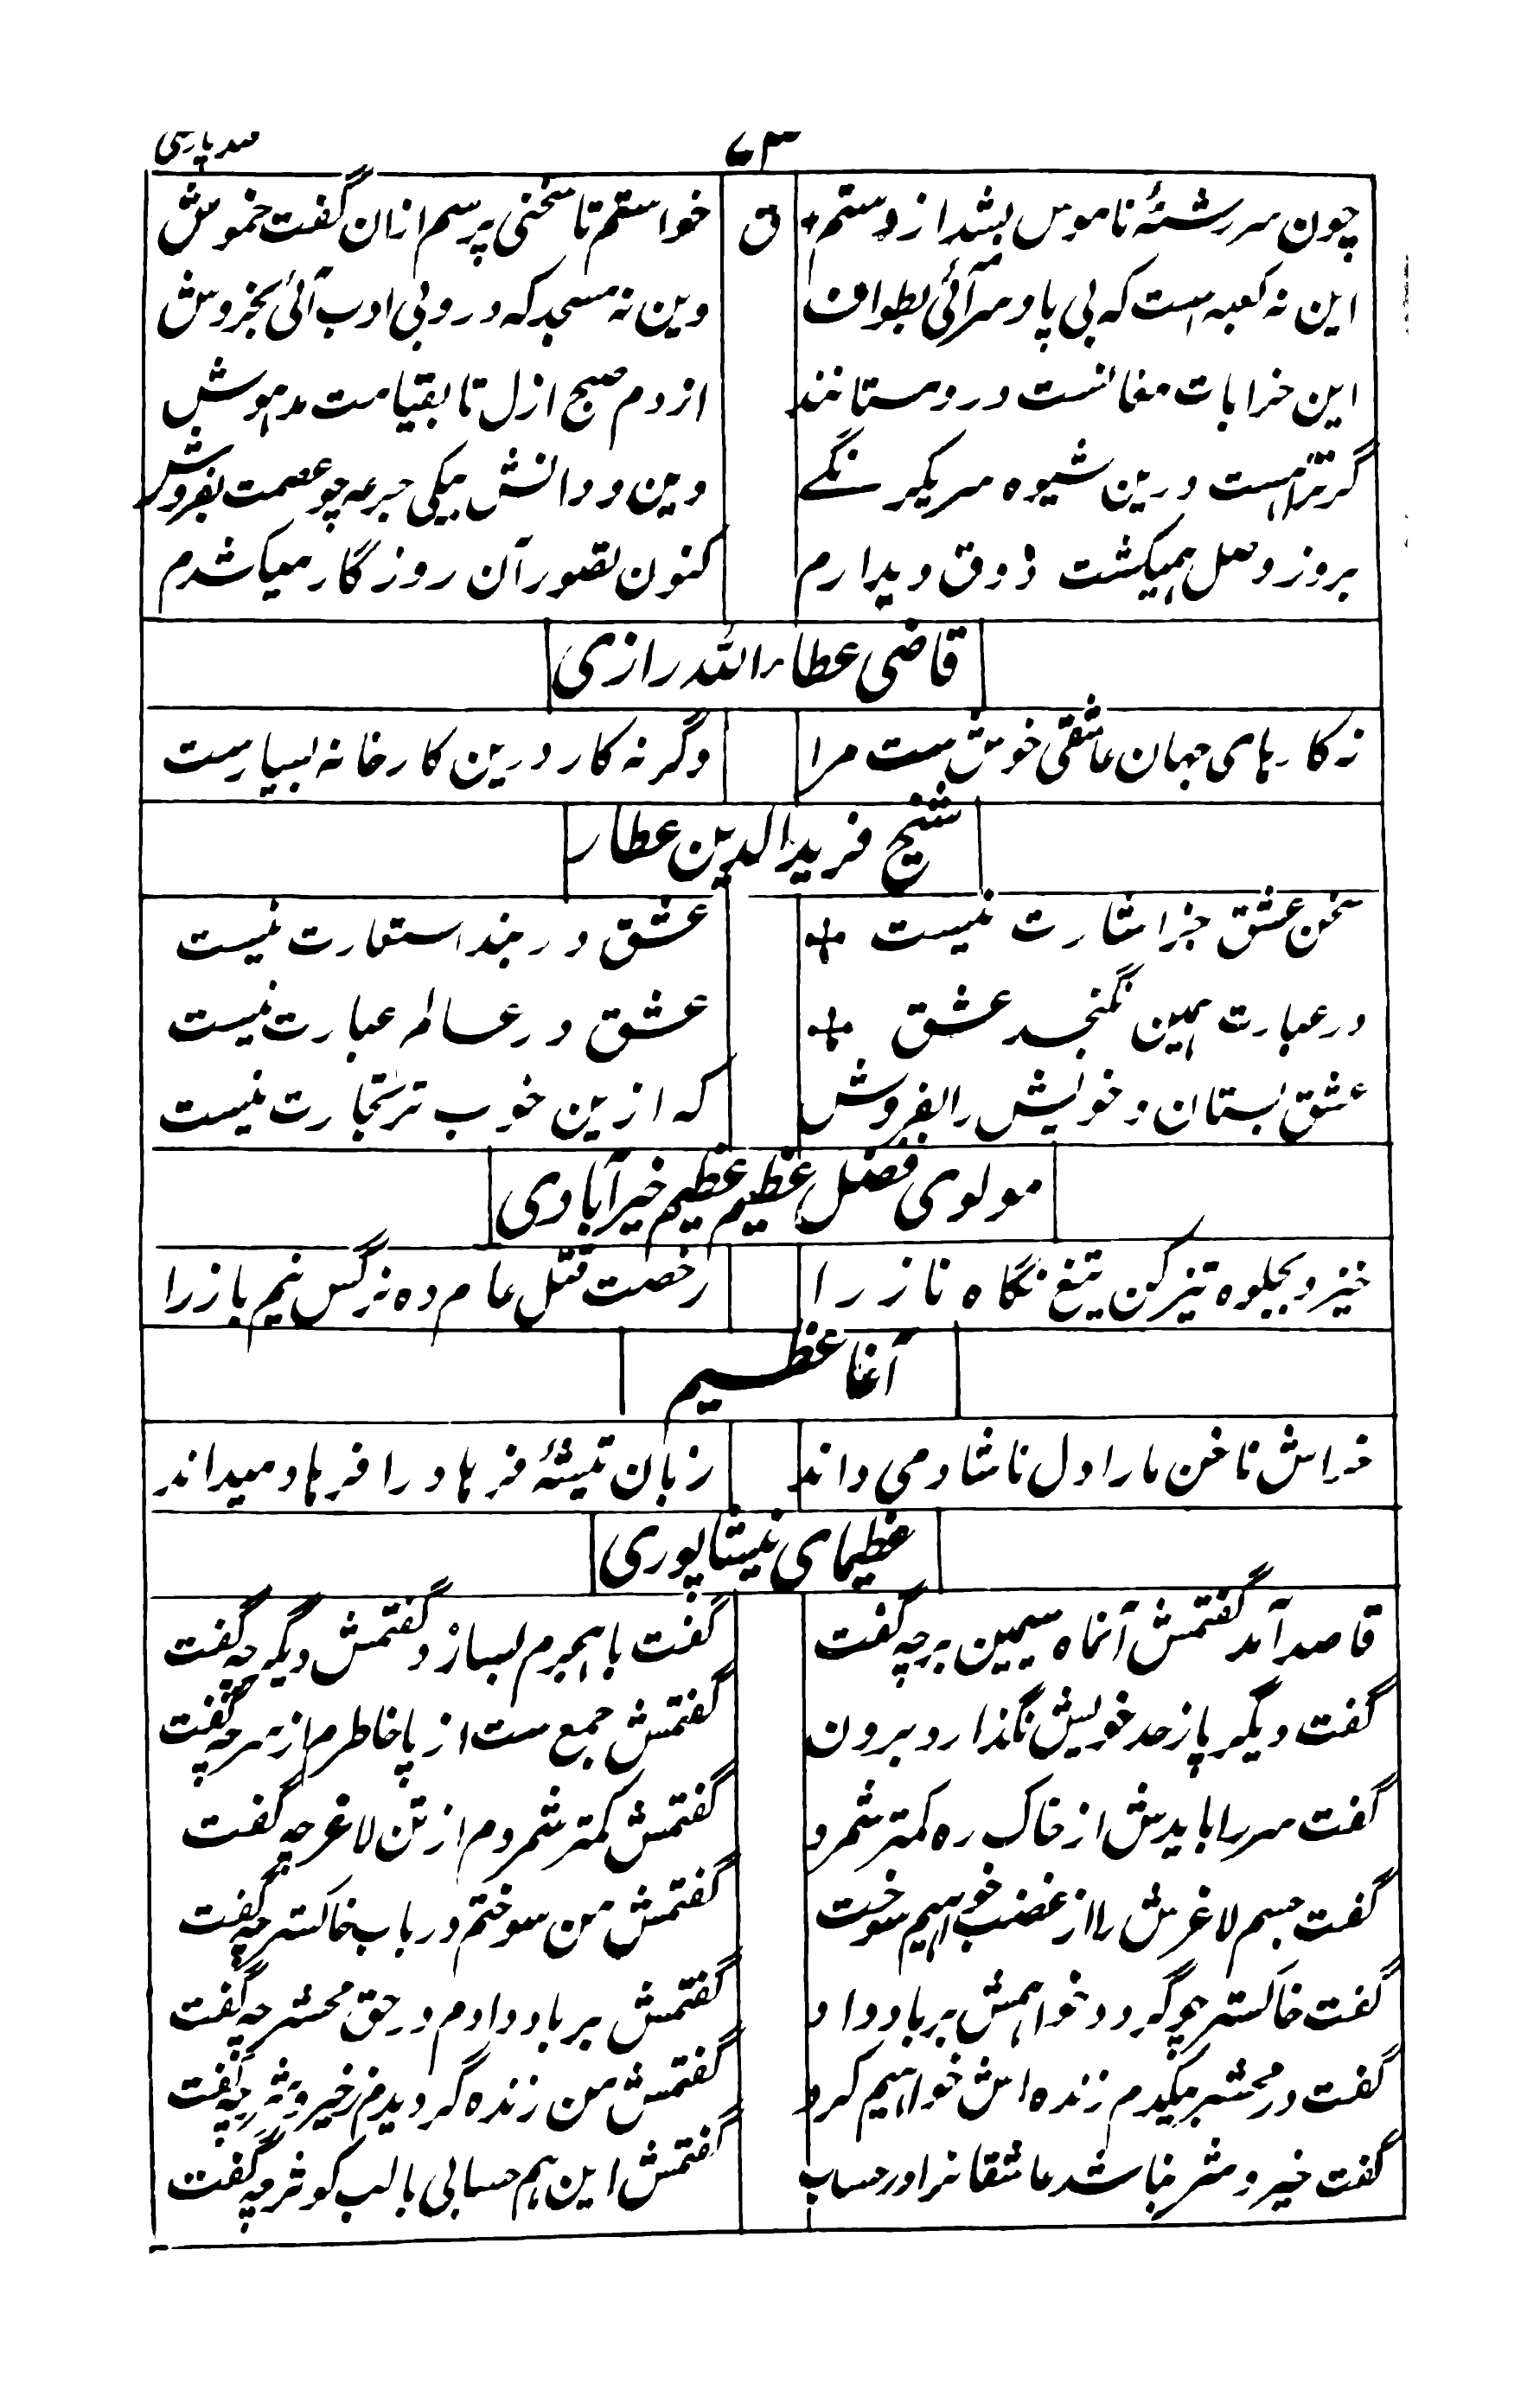 ۷۳ صد پارسی
چون سررشتهٔ ناموس بشد از دستم ق خواستم تا سخنی پرسم ازان گفت خموش
این نه کعبه است که بی پا و سر آئی بطواف وین نه مسجد که درو بی ادب آئی بخروش
این خرابات مغانست درو مستانند از دم صبح ازل تا بقیامت مدهوش
گر ترا هست درین شیوه سر یکرنگے دین و دانش بیکی جرعه چو عصمت بفروش
بروز وصل همیکشت ذوق دیدارم کنون تصور آن روزگار میکشدم
قاضی عطاء الله رازی
ز کارهای جهان عاشقی خوش ست مرا وگرنه کار درین کارخانه بسیارست
شیخ فریدالدین عطار
سخن عشق جز اشارت نیست عشق در بند استعارت نیست
در عبارت همین نگنجد عشق عشق در عالم عبارت نیست
عشق بستان و خویش را بفروش که ازین خوب تر تجارت نیست
مولوی فضل عظیم عظیم خیرآبادی
خیز و بجلوه تیز کن تیغ نگاه ناز را رخصت قتل عام ده نرگس نیم باز را
آغا عظیم
خراش ناخن ما را دل ناشاد می داند زبان تیشهٔ فرهاد را فرهاد میداند
عظیمای نیشاپوری
قاصد آمد گفتمش آنماه سیمین بر چه گفت گفت با هجرم بسازد گفتمش دیگر چه گفت
گفت دیگر پا ز حد خویش نگذارد برون گفتمش جمع ست از پا خاطرم از سر چه گفت
گفت سر را بایدش از خاک ره کمتر شمرد گفتمش کمتر شمردم از تن لاغر چه گفت
گفت جسم لاغرش را از غضب خواهیم سوخت گفتمش من سوختم در باب خاکستر چه گفت
گفت خاکستر چو گردد خواهمش بر باد داد گفتمش بر باد دادم در حق محشر چه گفت
گفت در محشر بیکدم زنده اش خواهیم کرد گفتمش من زنده گردیدم ز خیر و شر چه گفت
گفت خیر و شر نباشد عاشقانرا در حساب گفتمش این هم حسابی با لب کوثر چه گفت